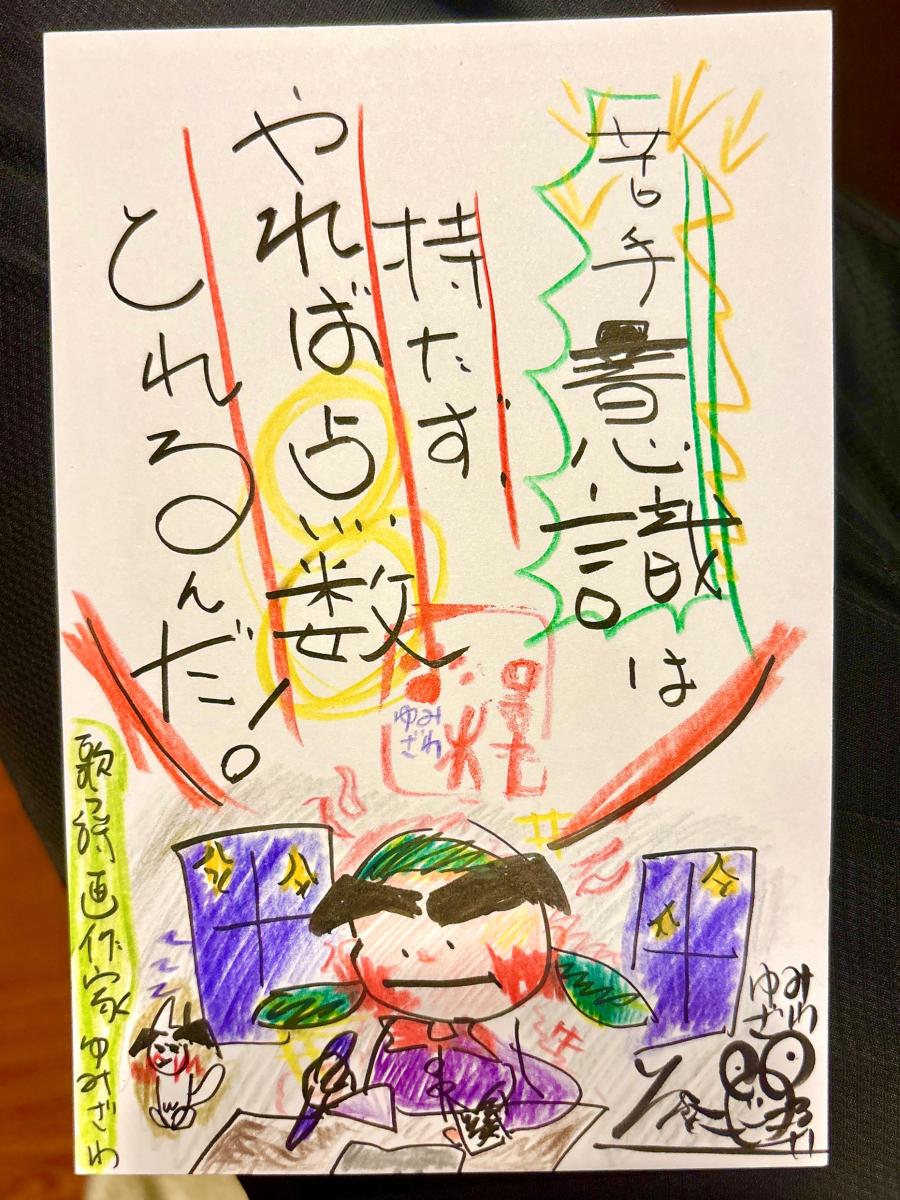 苦手意識は
持たず
やれば点数
とれるんだ!
ゆみ
ざわ
歌詩画作家 ゆみざわ
ゆみ
ざわ